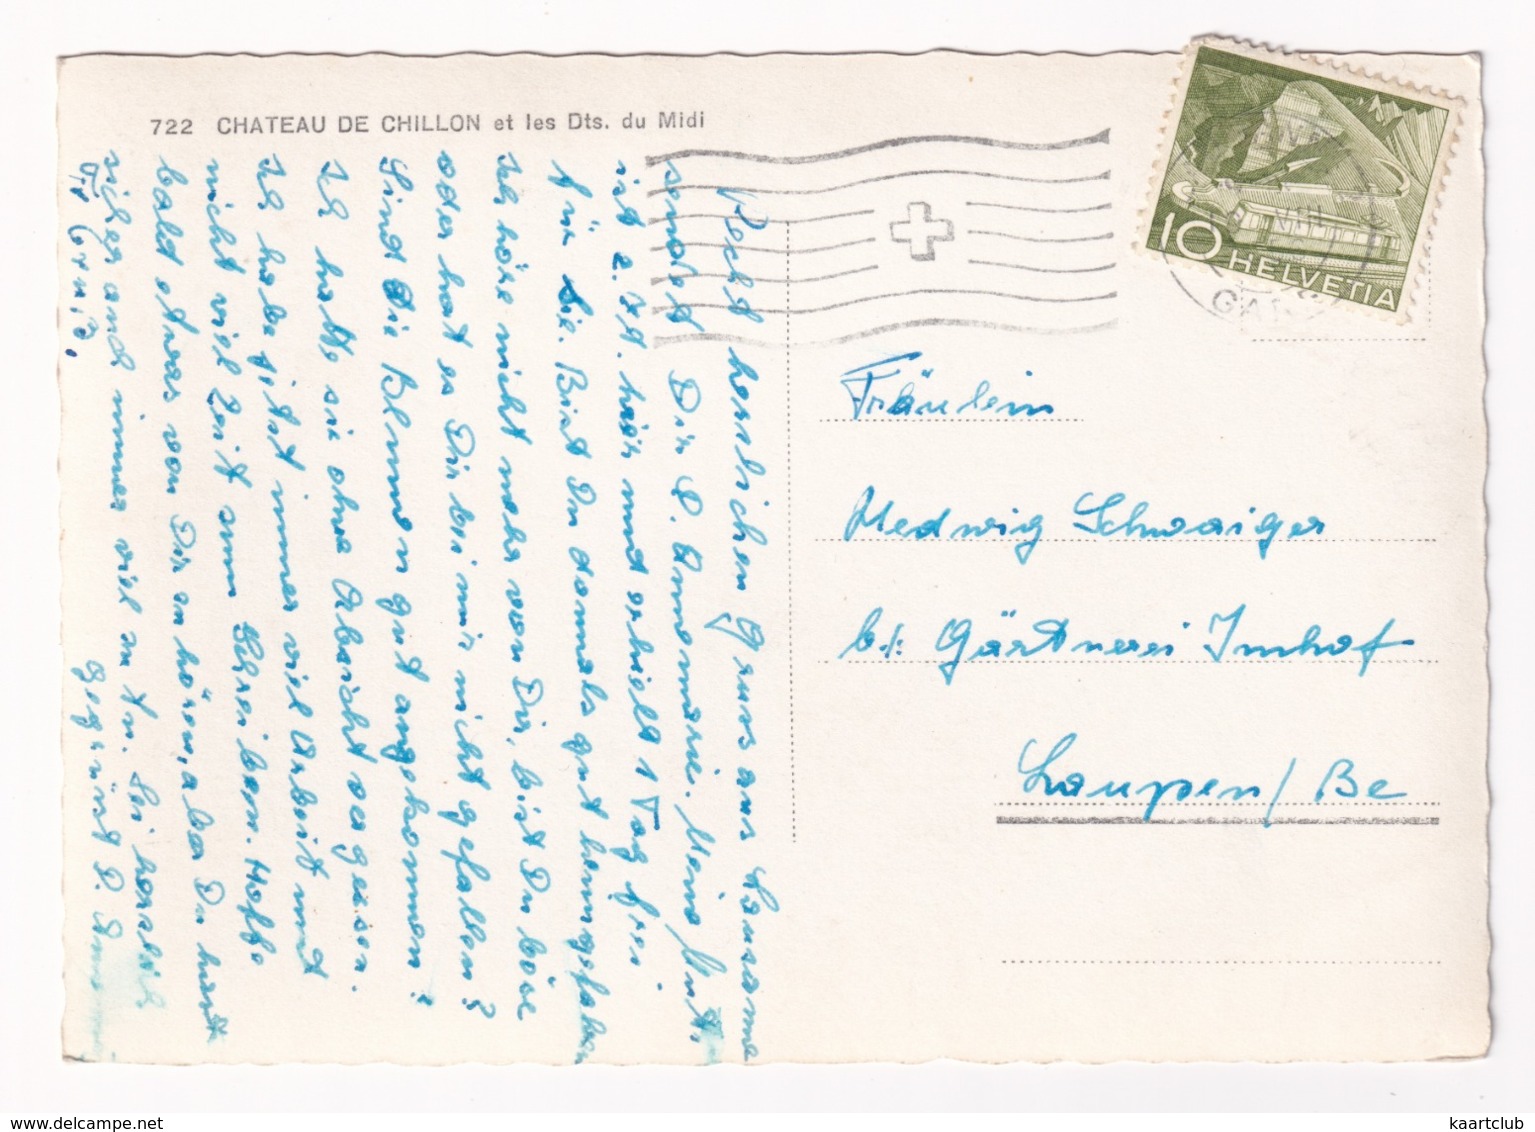 722 CHATEAU DE CHILLON et les Dts. du Midi
Recht herzlichen Gruss aus Lausanne
sendet Dir D. Annemarie. Meine Mutt.
ist z. Zt. hier und erhielt 1 Tag frei
für Sie. Bist Du damals gut heimgefahren
Ich höre nicht mehr von Dir, bist Du böse
oder hat es Dir bei mir nicht gefallen?
Sind die Blumen gut angekommen?
Ich hatte sie ohne Absicht vergessen.
Ich habe jetzt immer viel Arbeit und
nicht viel Zeit zum Schreiben. Hoffe
bald etwas von Dir zu hören, aber Du hast
sicher auch immer viel zu tun. Sei herzlich
gegrüsst D.
10 HELVETIA
GARE
VIII
Fräulein
Hedwig Schwaiger
b/: Gärtnerei Imhof
Laupen/Be
kaartclub